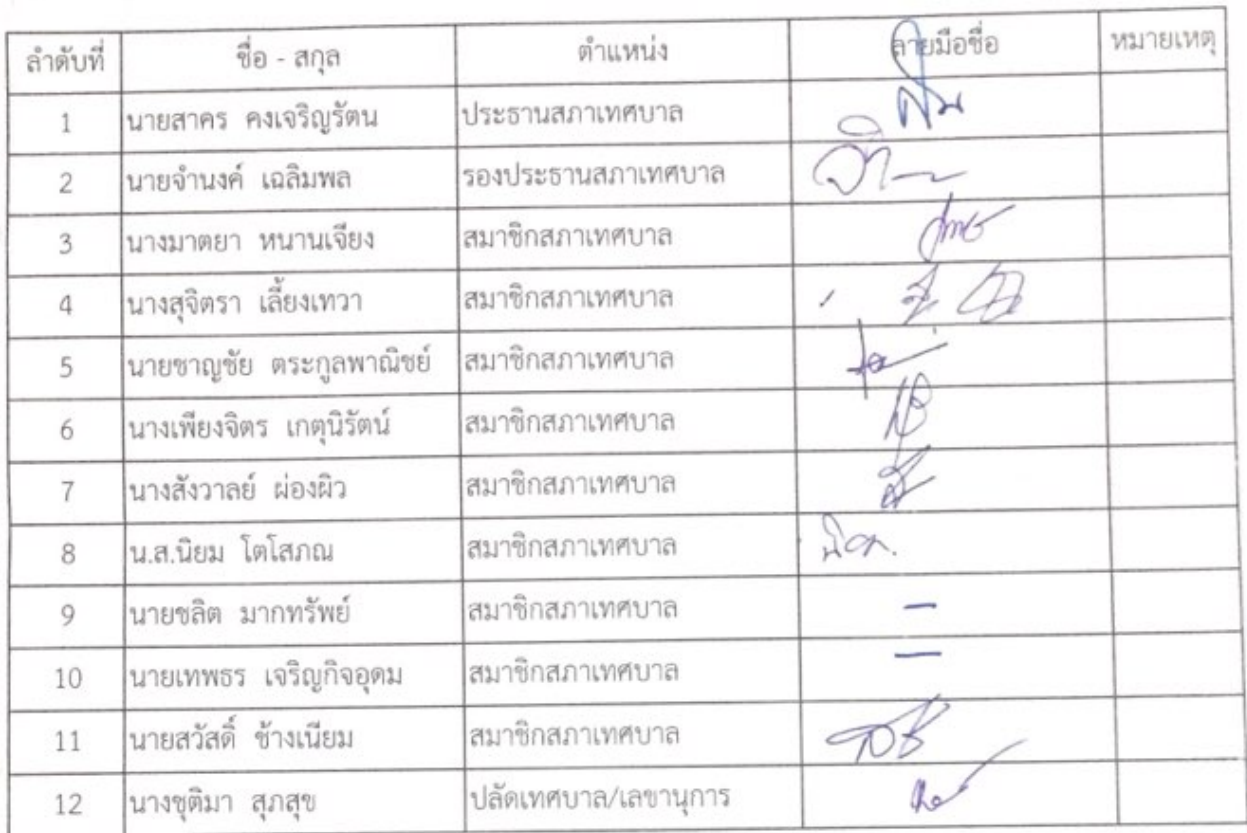 ลำดับที่ ชื่อ - สกุล ตำแหน่ง ลายมือชื่อ หมายเหตุ
1 นายสาคร คงเจริญรัตน ประธานสภาเทศบาล
2 นายจำนงค์ เฉลิมพล รองประธานสภาเทศบาล
3 นางมาตยา หนานเจียง สมาชิกสภาเทศบาล
4 นางสุจิตรา เลี้ยงเทวา สมาชิกสภาเทศบาล
5 นายชาญชัย ตระกูลพาณิชย์ สมาชิกสภาเทศบาล
6 นางเพียงจิตร เกตุนิรัตน์ สมาชิกสภาเทศบาล
7 นางสังวาลย์ ผ่องผิว สมาชิกสภาเทศบาล
8 น.ส.นิยม โตโสภณ สมาชิกสภาเทศบาล
9 นายชลิต มากทรัพย์ สมาชิกสภาเทศบาล –
10 นายเทพธร เจริญกิจอุดม สมาชิกสภาเทศบาล –
11 นายสวัสดิ์ ช้างเนียม สมาชิกสภาเทศบาล
12 นางชุติมา สุภสุข ปลัดเทศบาล/เลขานุการ